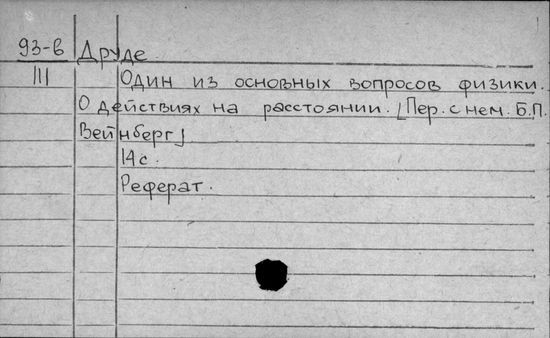 93-в Друде.
III Один из основных вопросов физики.
О действиях на расстоянии. [Пер. с нем. Б.П.
Вейнберг]
14 с.
Реферат.